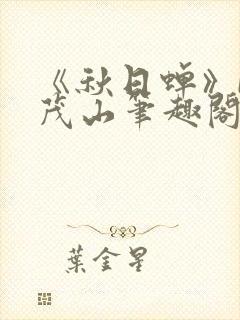 《秋日蝉》
茂山筆趣閣
葉金星